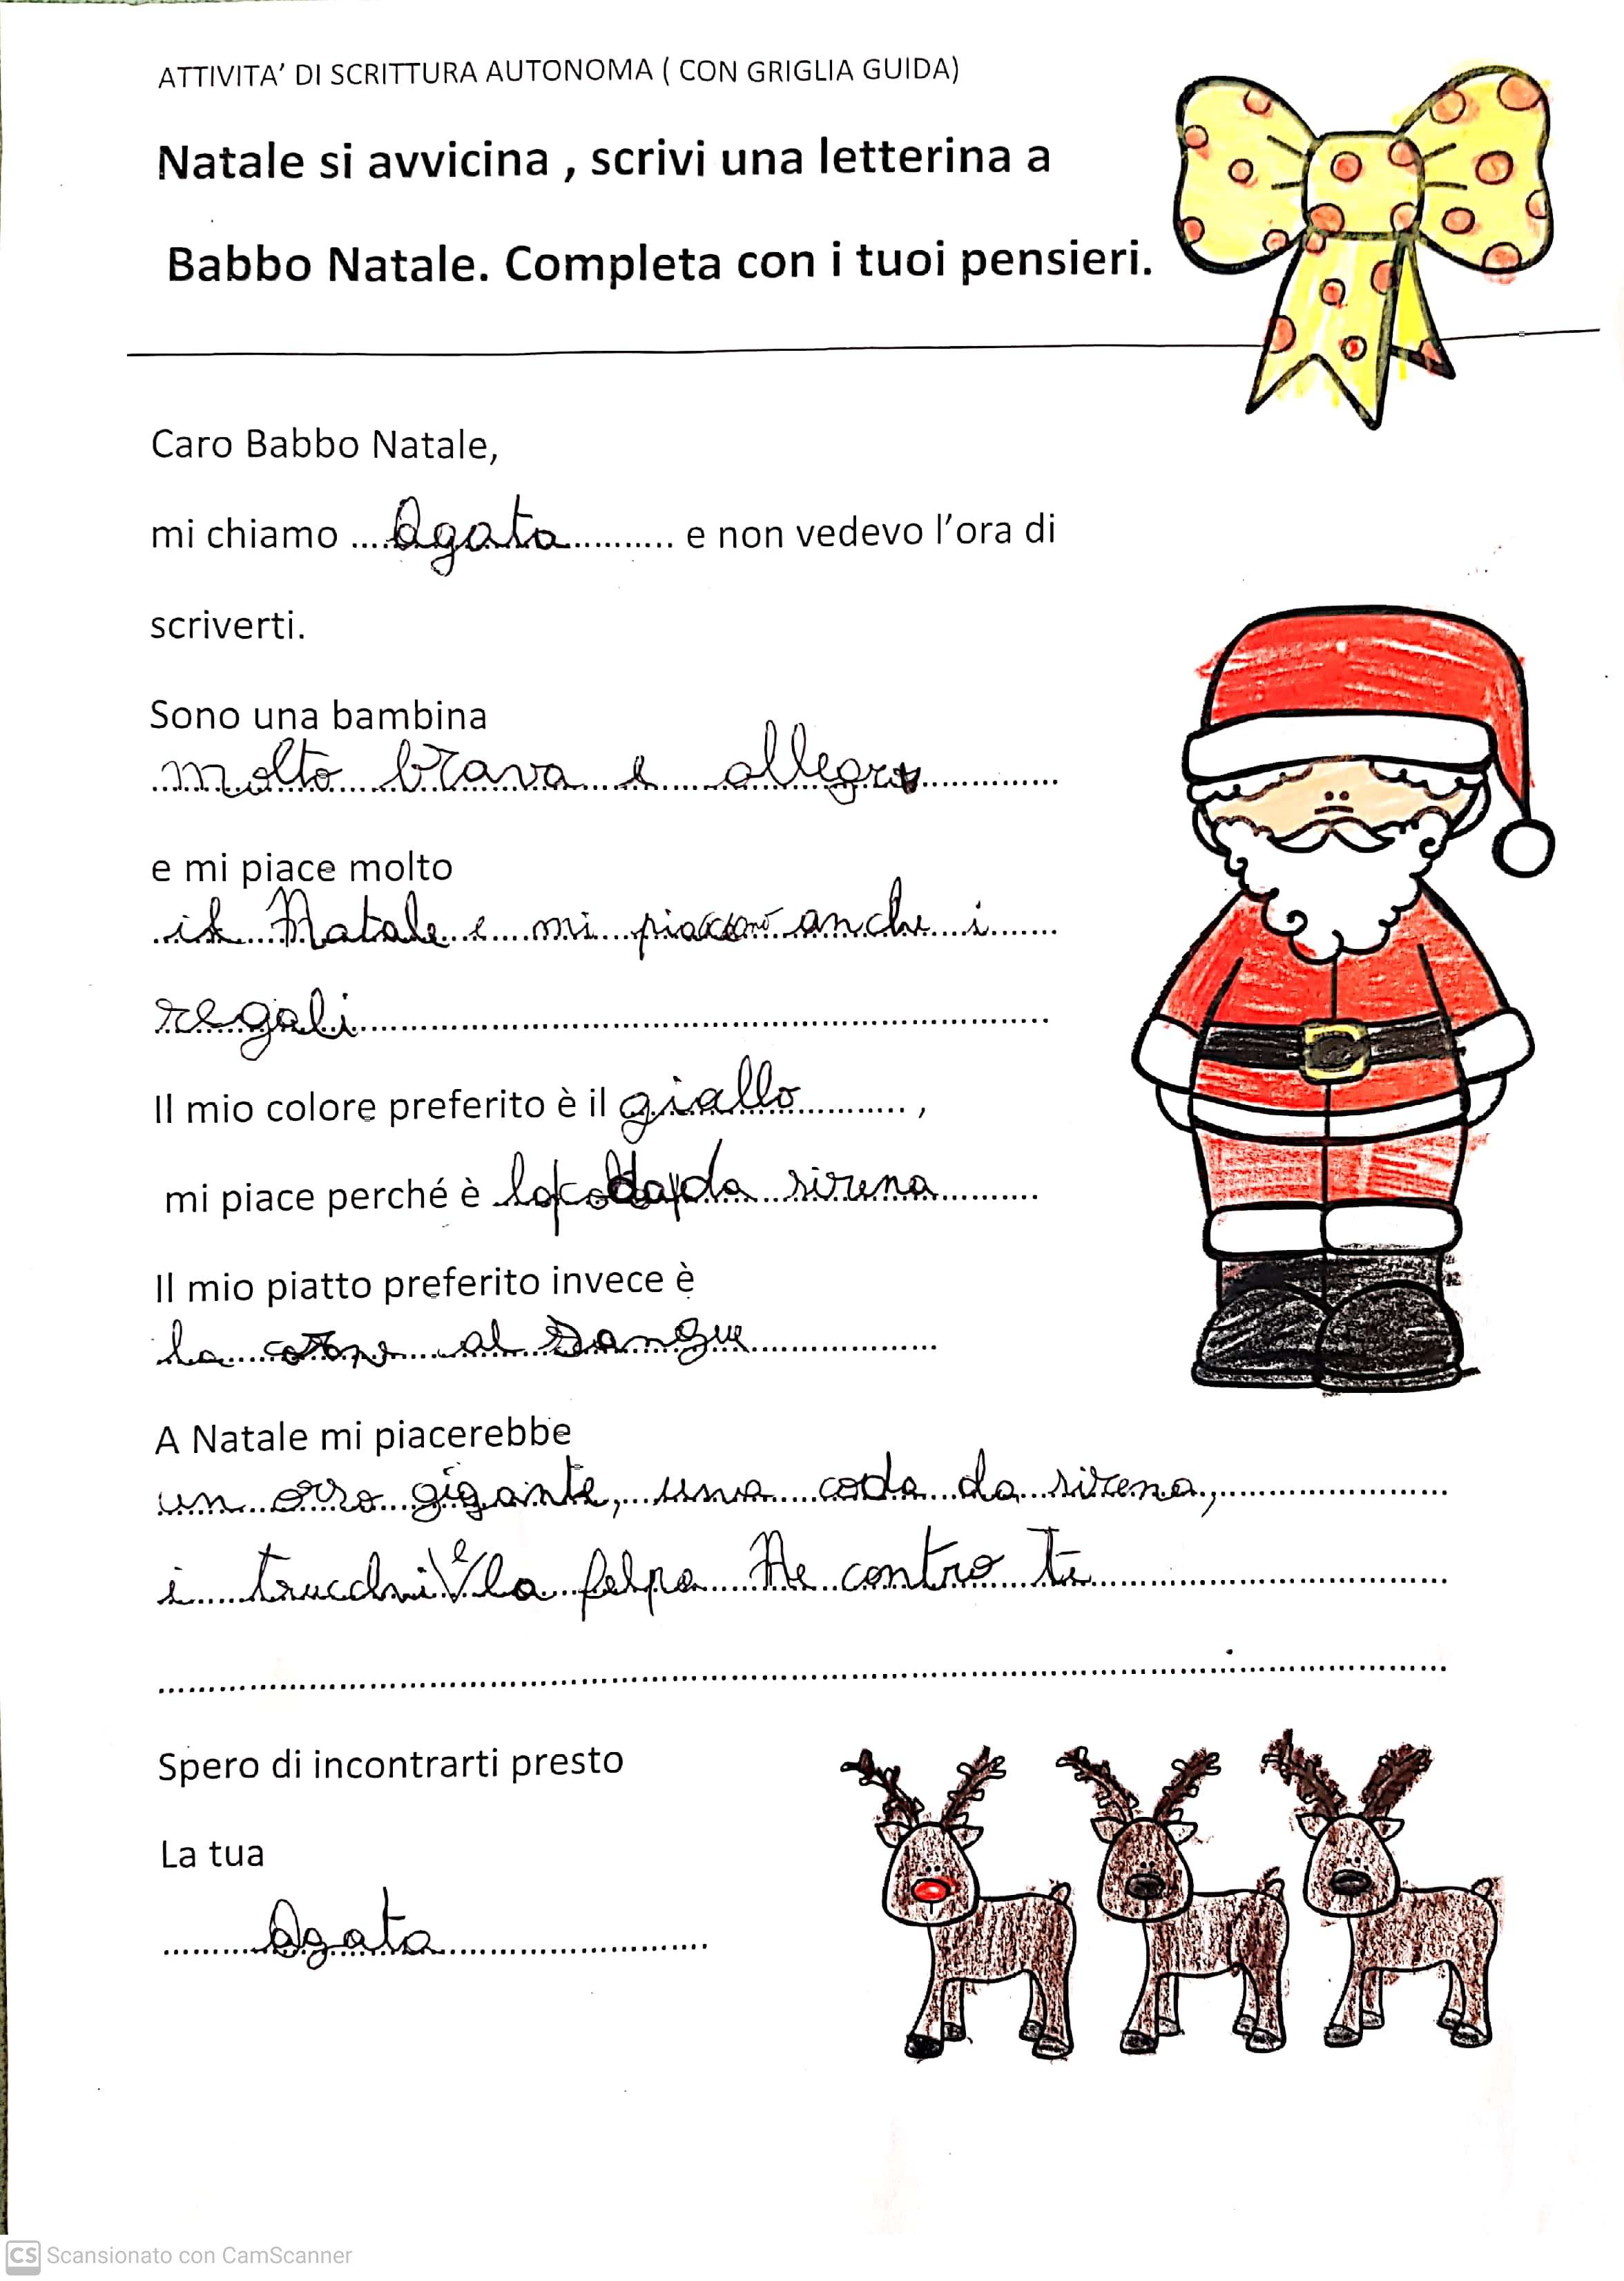 ATTIVITA' DI SCRITTURA AUTONOMA ( CON GRIGLIA GUIDA)
Natale si avvicina , scrivi una letterina a
Babbo Natale. Completa con i tuoi pensieri.
Caro Babbo Natale,
mi chiamo ....Agata.......... e non vedevo l'ora di
scriverti.
Sono una bambina
molto brava e allegra
e mi piace molto
il Natale e mi piacciono anche i
regali
Il mio colore preferito è il giallo ,
mi piace perché è da sirena
Il mio piatto preferito invece è
la al sangue
A Natale mi piacerebbe
un orso gigante, una coda da sirena,
i trucchi e la felpa Me contro Te
Spero di incontrarti presto
La tua
Agata
CS Scansionato con CamScanner